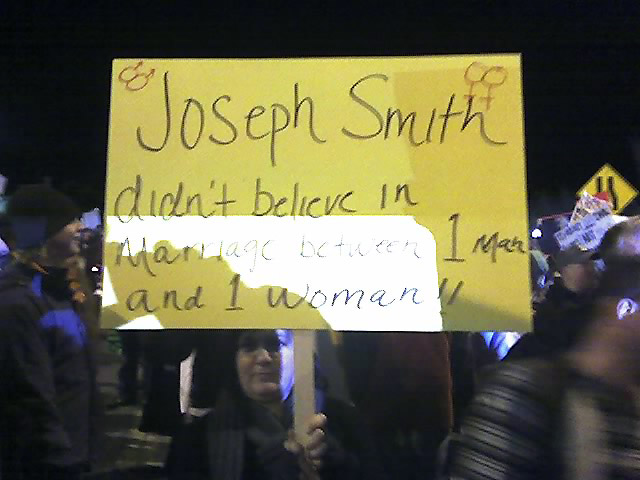 Joseph Smith
didn't believe in
Marriage between 1 Man
and 1 Woman!!